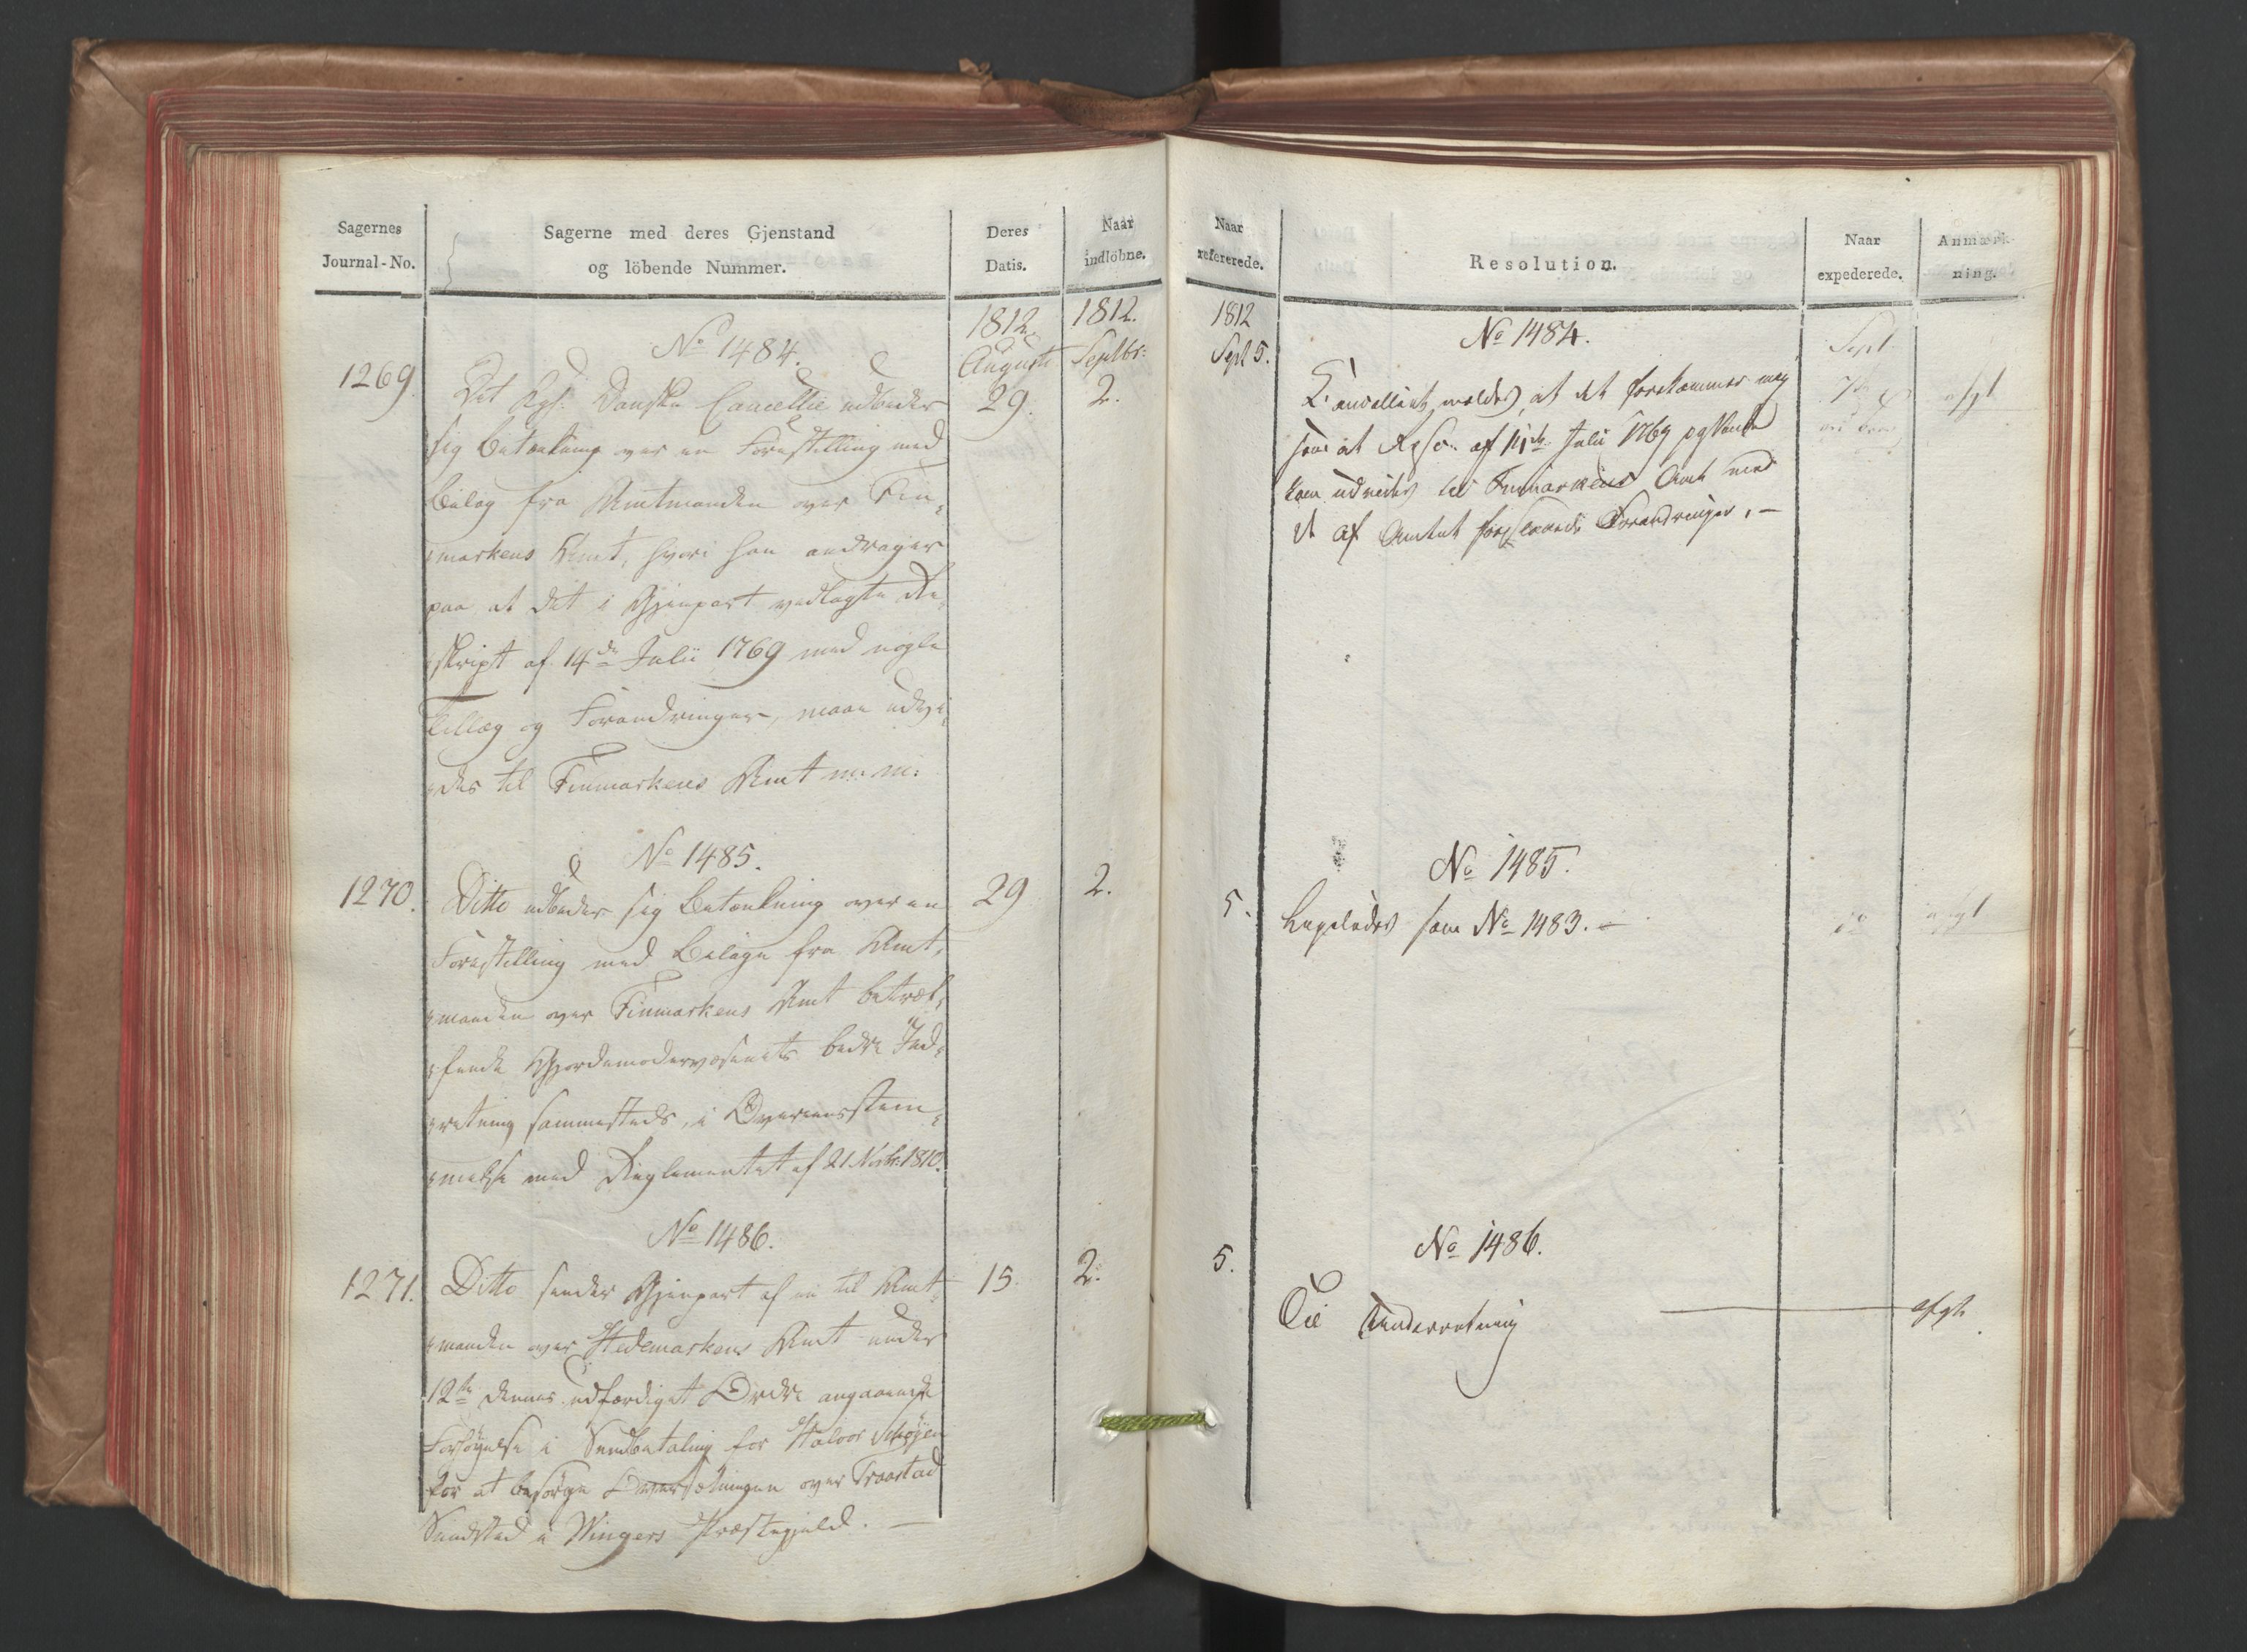 Sagernes
Journal-No.
Sagerne med deres Gjenstand
og löbende Nummer.
Deres
Datis.
Naar
indlöbne.
1812.
Augusti
1812.
Septbr:
No 1484.
1269.
Det Kgl. Danske Cancellie udbeder
29.
2.
sig Betænkning over en Forestilling med
Bilag fra Amtmanden over Fin-
markens Amt, hvori han andrager
paa at det i Gjenpart vedlagte Re-
skript af 14de Julii 1769 med nogle
Tillæg og Forandringer, maae udvi-
des til Finmarkens Amt m: m:
No 1485.
1270.
Ditto udbeder sig Betænkning over en
29
2.
Forestilling med Bilage fra Amt-
manden over Finmarkens Amt betref-
fende Gjordemodervæsenets bedre Ind-
retning sammesteds, i Overeensstem-
melse med Reglementet af 21 Novbr: 1810.
No 1486.
1271.
Ditto sender Gjenpart af en til Amt-
15.
2.
manden over Hedemarkens Amt under
12te dennes udfærdiget Ordre angaaende
Forhøyelse i Sundbetaling for Halvor Schøyen
for at besørge Oversætningen over Traastad
Sundsted i Wingers Præstegjeld. —
Naar
refererede.
Resolution.
Naar
expederede.
Anmærk-
ning.
1812
Sept 5.
No 1484.
Sept.
Cancelliet meldes, at det forekommer mig
7de
afgt
som at Rescr. af 14de Julii 1769
kan udvides til Finmarkens Amt med
de af Amtet foreslaaede Forandringer. —
No 1485.
5.
Ligeledes som No 1483. —
do
afgt
No 1486.
5.
Til Underretning
afgt.